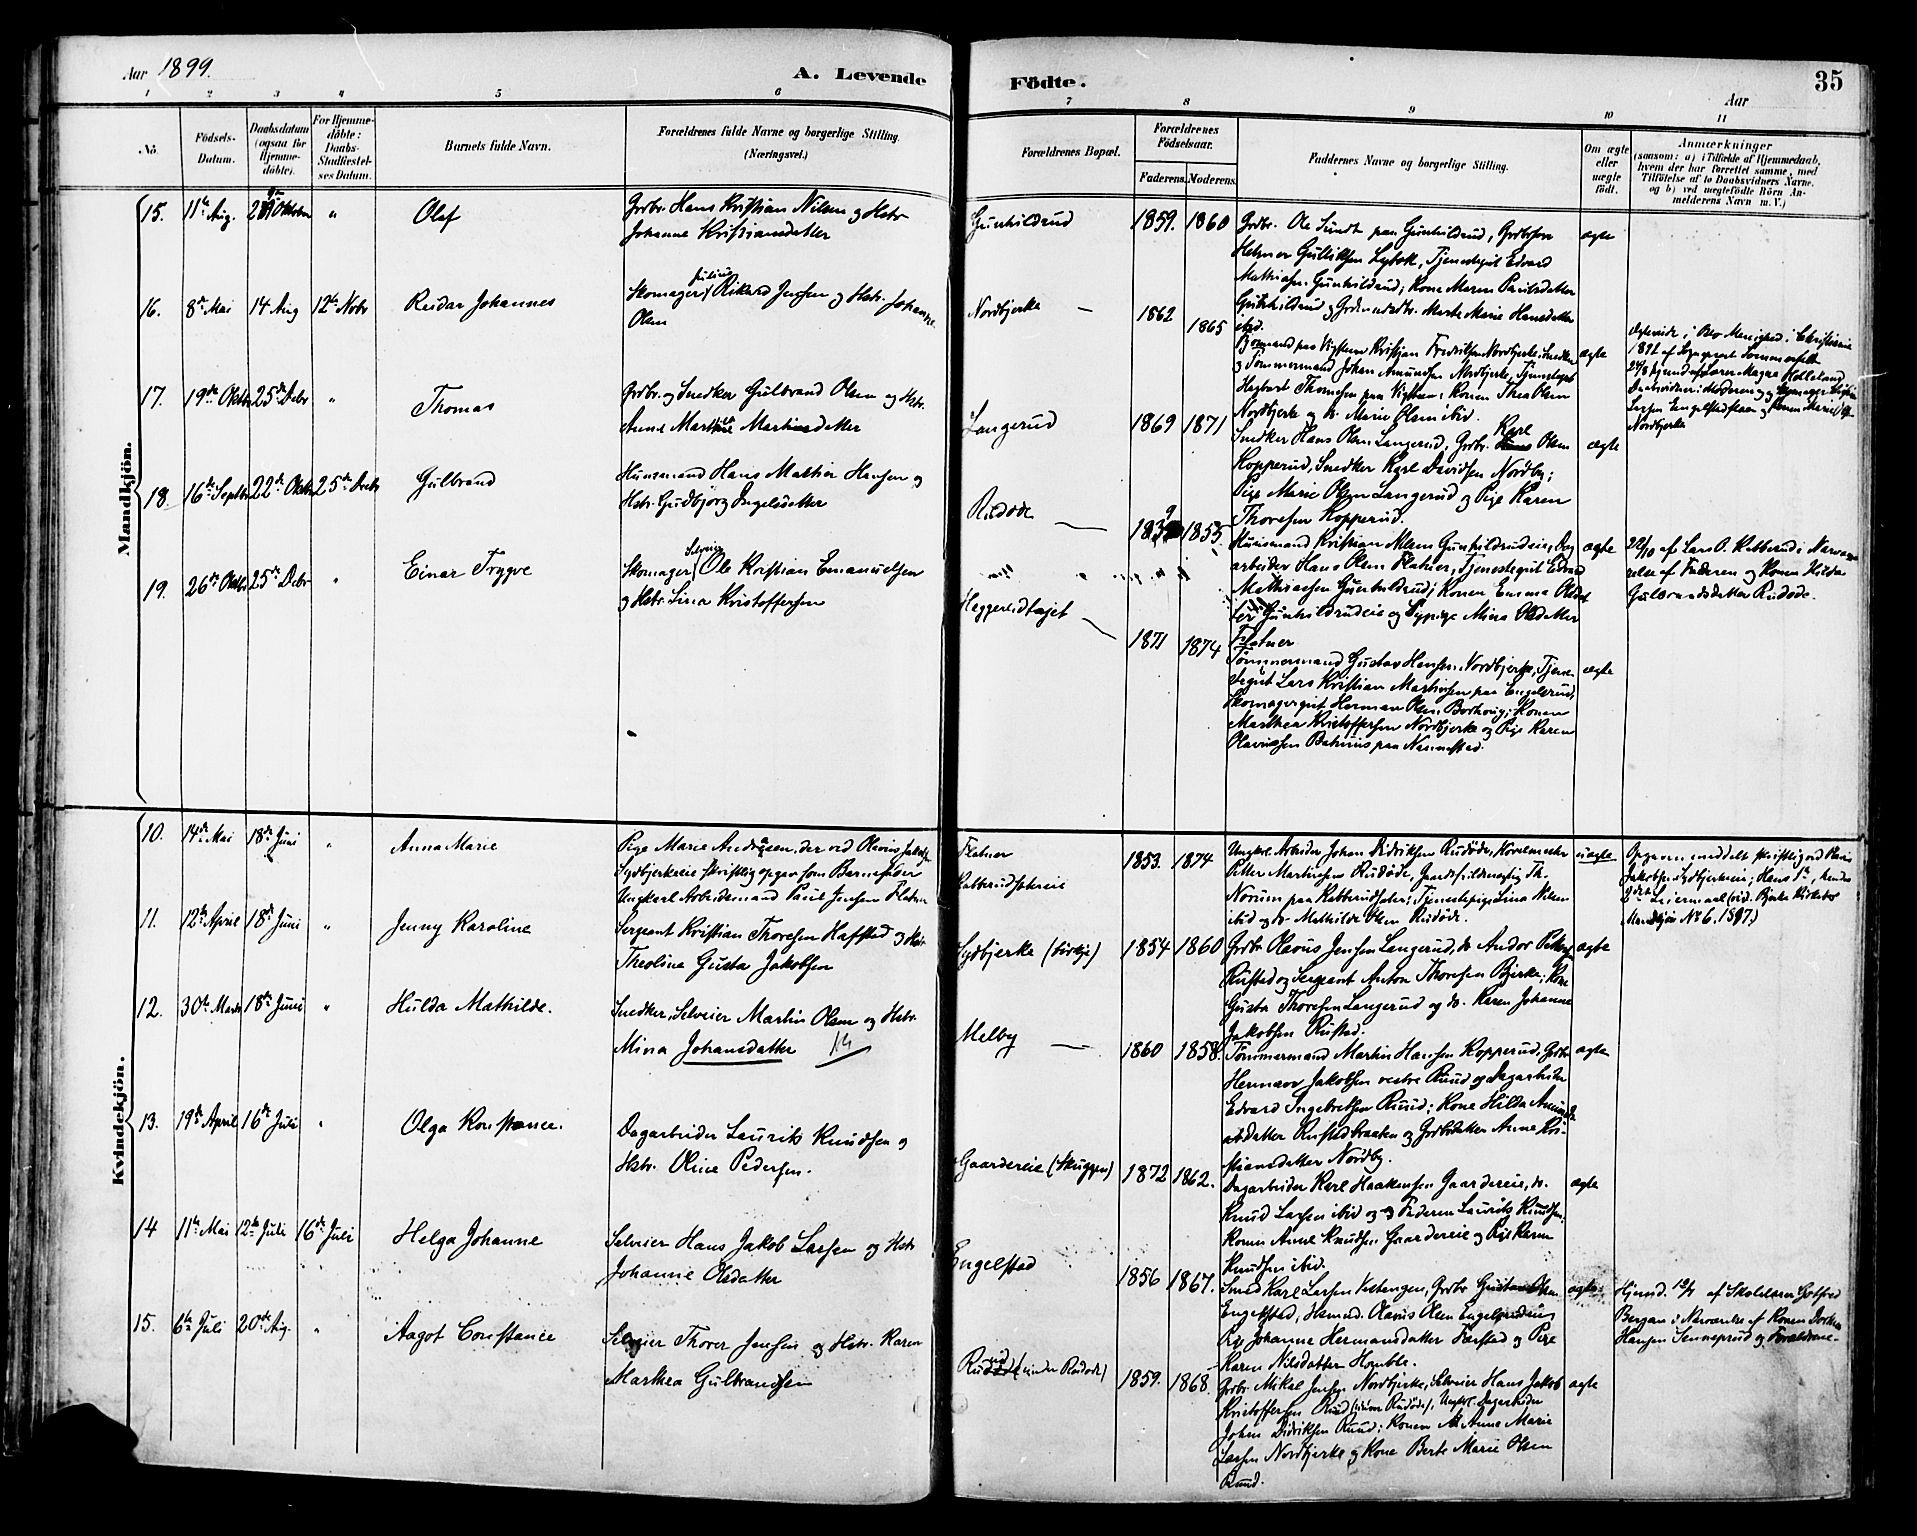 Aar 1899.
A. Levende
Födte.
35
Aar
1 2 3 4 5 6 7 8 9 10 11
No.
Födsels-
Datum.
Daabsdatum
(ogsaa for
Hjemme-
døbte).
For Hjemme-
døbte:
Daabs-
Stadfæstel-
ses Datum.
Barnets fulde Navn.
Forældrenes fulde Navne og borgerlige Stilling.
(Næringsvei.)
Forældrenes Bopæl.
Forældrenes
Födselsaar.
Faderens. Moderens.
Faddernes Navne og borgerlige Stilling.
Om ægte
eller
uægte
født.
Anmærkninger
(saasom: a) i Tilfælde af Hjemmedaab,
hvem der har forrettet samme, med
Tilföielse af to Daabsvidners Navne.
og b) ved uægtefödte Börn An-
melderens Navn m. V.)
Mandkjön.
15. 11te Aug. Oktober " Olaf
Grdbr. Hans Kristian Nilsen og Hstr.
Johanne Kristiansdatter
Gunhildrud 1859. 1860
Grdbr. Ole Lundt paa Gunhildrud, Grdbrsøn
Helmer Gulliksen Lybek, Tjenestegut Edvard
Mathisen Gunhildrud; Kone Maren Paulsdatter
Gunhildrud og Grdmdsdtr. Marte Marie Hansdatter
ibid.
ægte
16. 8de Mai 14 Aug 12te Nobr Reidar Johannes
Skomager Julius Rikard Jensen og Hstr. Johanne
Olsen
Nordbjerke — 1862 1865
paa Kristian Fredriksen Nordbjerke, Snedker
og Tømmermand Johan Amundsen Nordbjerke, Tjenestegut
Hagbart Thomesen paa; Konen Thea Olsen
Nordbjerke og do. Marie Olsen ibid.
ægte
i Menighed i Christiania
1891 af Sogneprest Sommerfelt
af Lars Magne Helleland
Moderen og
Larsen Engelstad og Konen Marie
Nordbjerke
17. 19de Oktbr 25de Debr " Thomas
Grdbr. og Snedker Gulbrand Olsen og Hstr.
Anne Marthine Martinsdatter
Langerud 1869 1871
Snedker Hans Olsen Langerud, Grdbr. Karl Olsen
Kopperud, Snedker Karl Davidsen Nordby;
Pige Marie Olsen Langerud og Pige Karen
Thoresen Kopperud.
ægte
18. 16de Septbr 22de Oktbr 25de Decbr Gulbrand
Huusmand Hans Mathias Hansen og
Hstr. Gudbjørg Ingelsdatter
Rudøde — 1839 1855.
Huusmand Kristian Olsen Gunhildrudeie, Dag
arbeider Hans Olsen Flatner, Tjenestegut Edvard
Mathisen Gunhildrud; Konen Emma Olsdat
ter Gunhildrudeie og Sypige Mina Olsdatter
Flatner
ægte
22/10 af Lars O. Ratterud i Nærvæ-
relse af Faderen og Konen Hulda
Gulbrandsdatter Rudøde.
19. 26de Oktbr 25de Debr " Einar Trygve
Skomager Selveier Ole Kristian Emanuelsen
og Hstr. Lina Kristoffersen
Heggereidhøjet — 1871 1874
Tømmermand Gustav Hansen Nordbjerke, Tjene-
stegut Lars Kristian Martinsen paa Engelsrud,
Skomagergut Herman Olsen Borthong; Konen
Marthea Kristoffersen Nordbjerke og Pige Karen
Olavissen paa Nannestad.
ægte
Kvindekjön.
10. 14de Mai 18de Juni " Anna Marie
Pige Marie Andresen, der ved Olavus Jakobsen
Sydbjerkeeie skriftlig opgav som Barnefader
Ungkarl Arbeidsmand Paul Jensen Flatner
Flatner
Ratterudsætereie
1853. 1874
Ungkarl Arbeider Johan Didriksen Rudøde,
Petter Martinsen Rudøde, Th.
Norum paa Ratterudsæter; Tjenestepige Lina Nilsen
ibid og do. Mathilde Olsen Rudøde.
uægte
Opgaven meddelt skriftlig ved Olavus
Jakobsen Sydbjerkeeie; Hans 1ste, hendes
2det Leiermaal (vid. Bjerke Kirkebog
Mandkjøn No 6. 1897.)
11. 12te April 18de Juni " Jenny Karoline
Sergeant Kristian Thoresen Haffstad og Hstr.
Theoline Gusta Jakobsen
Sydbjerke 1854 1860
Grdbr. Olavus Jensen Langerud, do. Andor Petters
Rustad og Sergeant Anton Thoresen Bjerke; Kone
Gusta Thoresen Langerud og do. Karen Johanne
Jakobsen Rustad.
ægte
12. 30te Marts 18de Juni " Hulda Mathilde.
Snedker, Selveier Martin Olsen og Hstr.
Mina Johansdatter
Melby — 1860 1858.
Tømmermand Martin Hansen Kopperud, Grdbr.
Herman Jakobsen vestre Ruud og Dagarbeider
Edvard Ingebretsen Ruud; Kone Hilda Amund
datter Rustadbraaten og Grdbrdatter Anne Kri-
stiansdatter Nordby.
ægte
13. 19de April 16de Juli " Olga Konstance.
Dagarbeider Laurits Knudsen og
Hstr. Oline Pedersen.
Gaardereie (Skuggen) 1872 1862.
Dagarbeider Karl Haakensen Gaardereie, do.
Knud Larsen ibid og Faderen Laurits Knudsen;
Konen Anne Knudsen Gaardereie og Pige Karen
Knudsen ibid.
ægte
14 11te Mai 12te Juli 16de Juli Helga Johanne
Selveier Hans Jakob Larsen og Hstr.
Johanne Olsdatter
Engelstad 1856 1867.
Smed Karl Larsen Vestengen, Grdbr Gustav Olsen
Engelstad, Olavis Olsen
Pige Johanne Hermansdatter Færstad og Pige
Karen Nilsdatter Homble.
ægte
Hjemd. 12/7 af Skolelærer Gotfred
Bergan i Nærværelse af Konen
Hansen Senneprud og Forældrene
15. 6te Juli 20de Aug. " Aagot Constance
Selveier Thorer Jensen og Hstr. Karen
Marthea Gulbrandsen
Ruud (under Rudøde) 1859. 1868
Grdbr. Mikal Jensen Nordbjerke, Selveier Hans Jakob
Kristoffersen Ruud (under Rudøde), Ungkl. Dagarbeider
Johan Didriksen Ruud; Konen Anne Marie
Larsen Nordbjerke og Kone Berte Marie Olsen
Ruud.
ægte